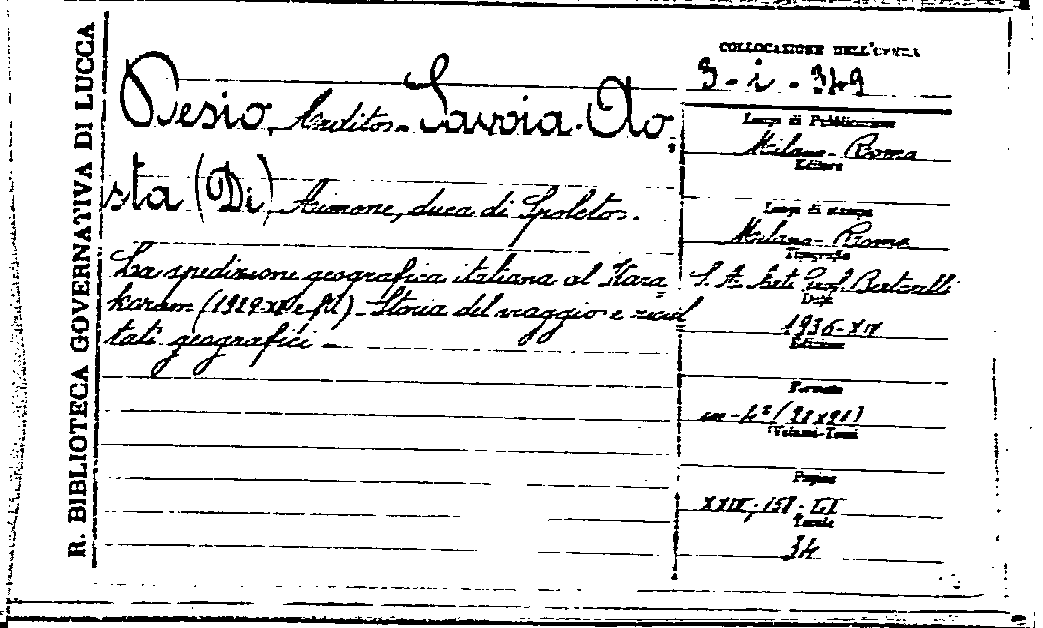 R. BIBLIOTECA GOVERNATIVA DI LUCCA
COLLOCAZIONE DELL'OPERA
3 - i - 349
Desio, Arditos - Savoia-Ao-
sta (Di) Aimone, duca di Spoletos.
La spedizione geografica italiana al Kara-
korum (1929 - Storia del viaggio e risul
tati geografici -
Luogo di Pubblicazione
Milano - Roma
Editore
Luogo di stampa
Milano - Roma
Tipografia
S. A. Arti Graf. Bertarelli
Data
1936-XIV
Edizione
Formato
in-4°
Volumi-Tomi
Pagine
XXIV, 158 -
Tavole
34